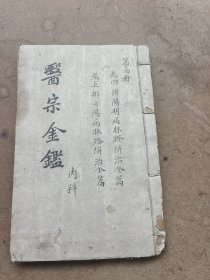 第册
卷四 辨陽明病脉證併治全篇
卷五 辨少陽病脉證併治全篇
醫宗金鑑
内科